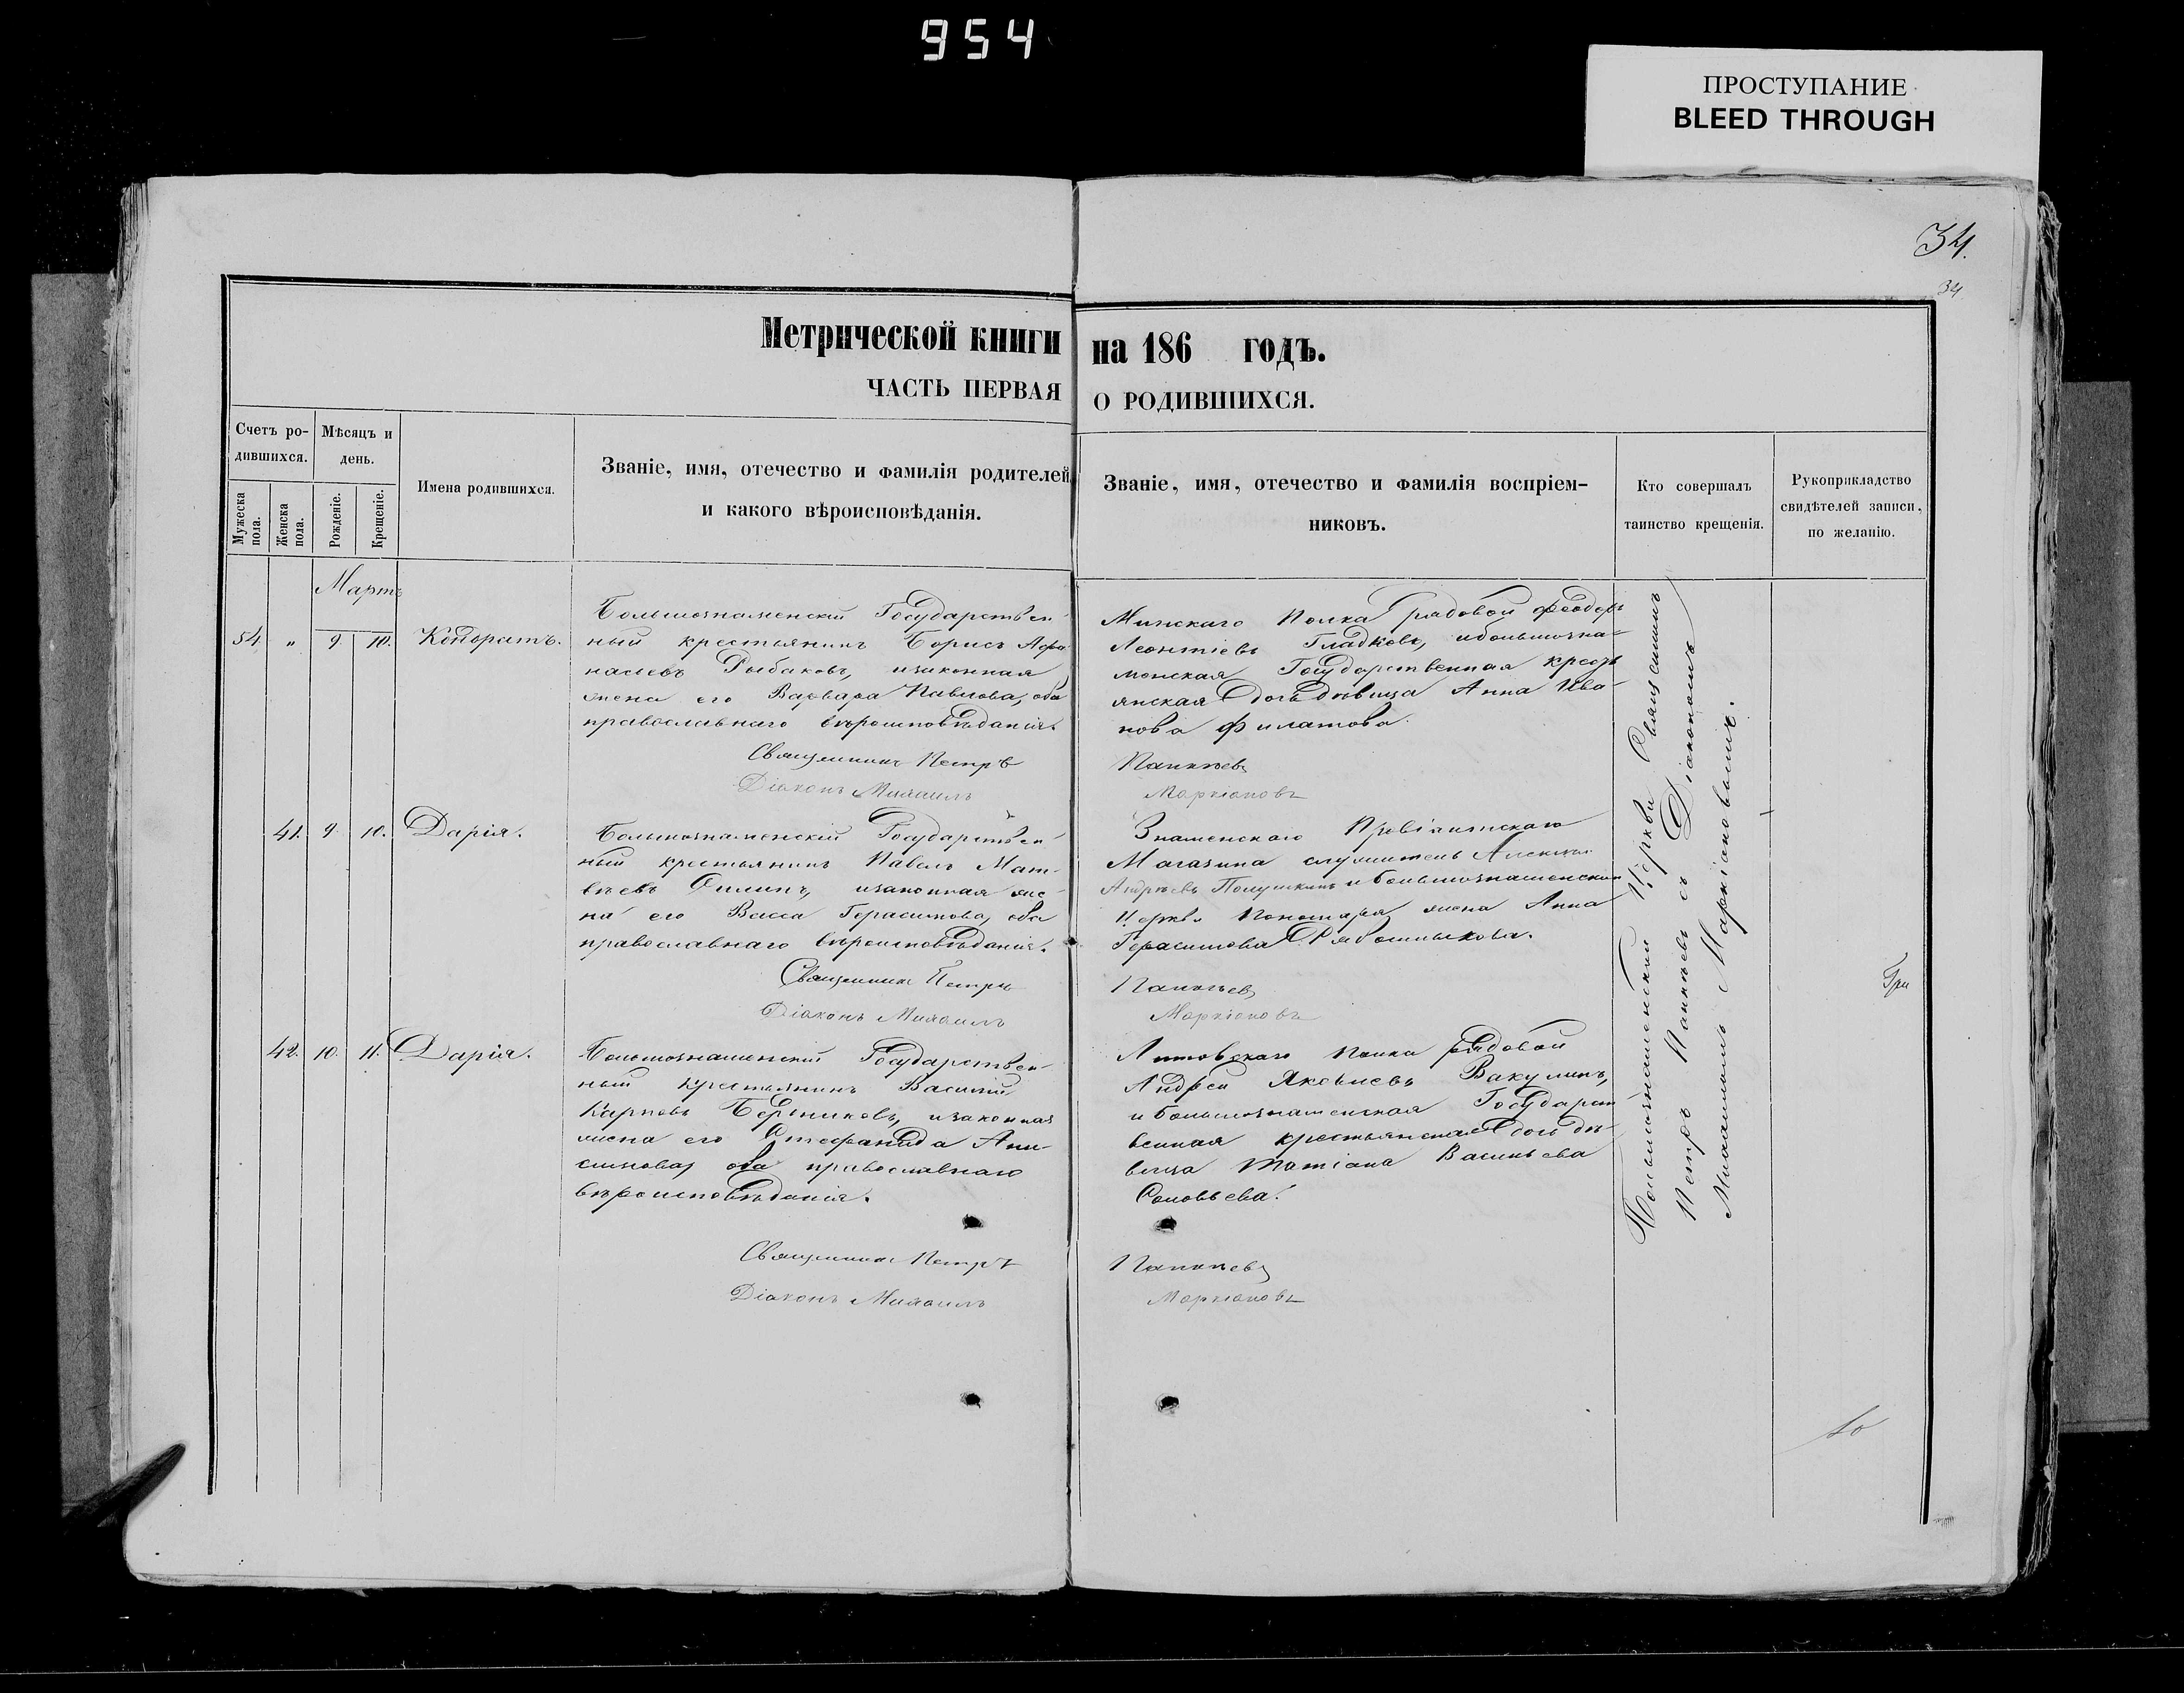 954
ПРОСТУПАНИЕ
BLEED THROUGH
34.
34
Метрической книги на 186 годъ.
ЧАСТЬ ПЕРВАЯ О РОДИВШИХСЯ.
Счетъ ро-
дившихся.
Мужеска пола.
Женска пола.
Мѣсяцъ и
день.
Рожденіе.
Крещеніе.
Имена родившихся.
Званіе, имя, отечество и фамилія родителей
и какого вѣроисповѣданія.
Званіе, имя, отечество и фамилія воспріем-
никовъ.
Кто совершалъ
таинство крещенія.
Рукоприкладство
свидѣтелей записи,
по желанію.
Мартъ
54 " 9. 10. Кондратъ.
Большознаменскій Государствен-
ный крестьянинъ Борисъ Афа-
насьевъ Рыбаковъ, изаконная
жена его Варвара Павлова, оба
православнаго вѣроисповѣданія.
Священникъ Петръ
Діаконъ Михаилъ
Минскаго Полка рядовой Феодоръ
Леонтіевъ Гладковъ, ибольшозна-
менская Государственная кресть
янская дочь дѣвица Анна Ива-
нова Филатова.
Маркіановъ
41. 9. 10. Дарія.
Большознаменскій Государствен-
ный крестьянинъ Павелъ Мат-
вѣевъ изаконная же-
на его Васса Герасимова, оба
православнаго вѣроисповѣданія.
Священникъ Петръ
Діаконъ Михаилъ
Знаменскаго Провіантскаго
Магазина служитель Алексѣй
Андрѣевъ Полушкинъ и большознаменской
Церкви Пономаря жена Анна
Герасимова
Маркіановъ
42. 10. 11. Дарія.
Большознаменскій Государствен-
ный крестьянинъ Василій
Карповъ изаконная
жена его Стефанида Ани-
симова, оба православнаго
вѣроисповѣданія.
Священникъ Петръ
Діаконъ Михаилъ
Литовскаго Полка рядовой
Андрей Вакулинъ,
и большознаменская Государст
венная крестьянская дочь дѣ-
вица Татіана Васильева
Соловьева.
Маркіановъ
Большознаменской Церкви Священникъ
Петръ съ Діакономъ
Михаиломъ Маркіановымъ.
Гри